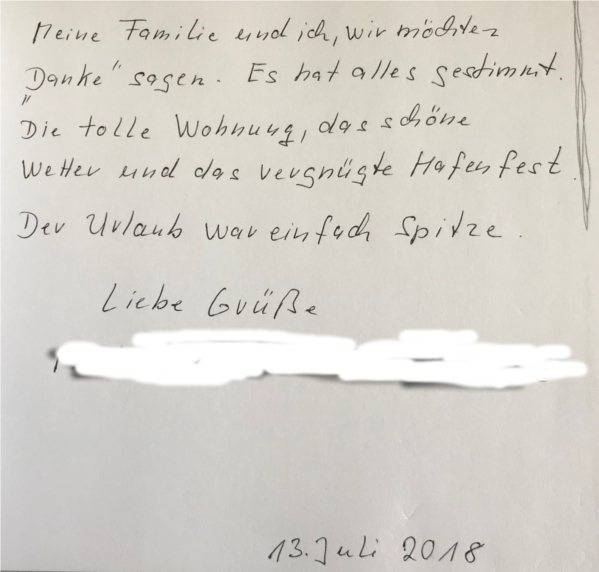 Meine Familie und ich, wir möchten
„Danke" sagen. Es hat alles gestimmt.
Die tolle Wohnung, das schöne
Wetter und das vergnügte Hafenfest.
Der Urlaub war einfach Spitze.
Liebe Grüße
13. Juli 2018